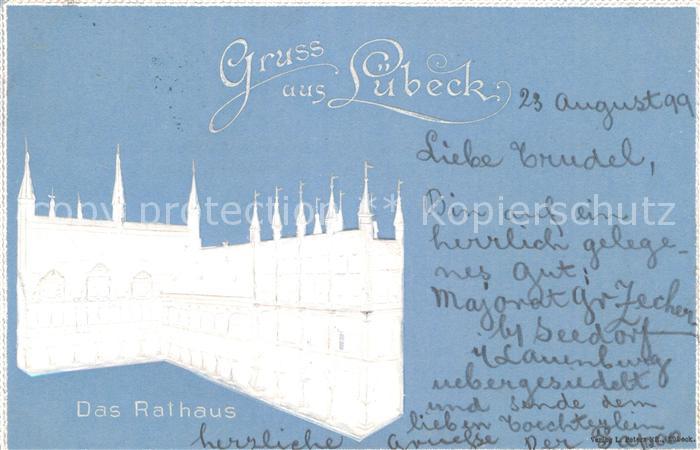 Gruss
aus Lübeck
23 August 99
Liebe Trudel,
Bin auf ein
herrlich gelege-
nes Gut;
Majorat Gr Zecher
by Seedorf
i/Lauenburg
uebergesiedelt
und sende dem
lieben Toechterlein
herrliche Gruesse Der
Das Rathaus
copy protection - Kopierschutz
Verlag L. Peters
Lübeck.